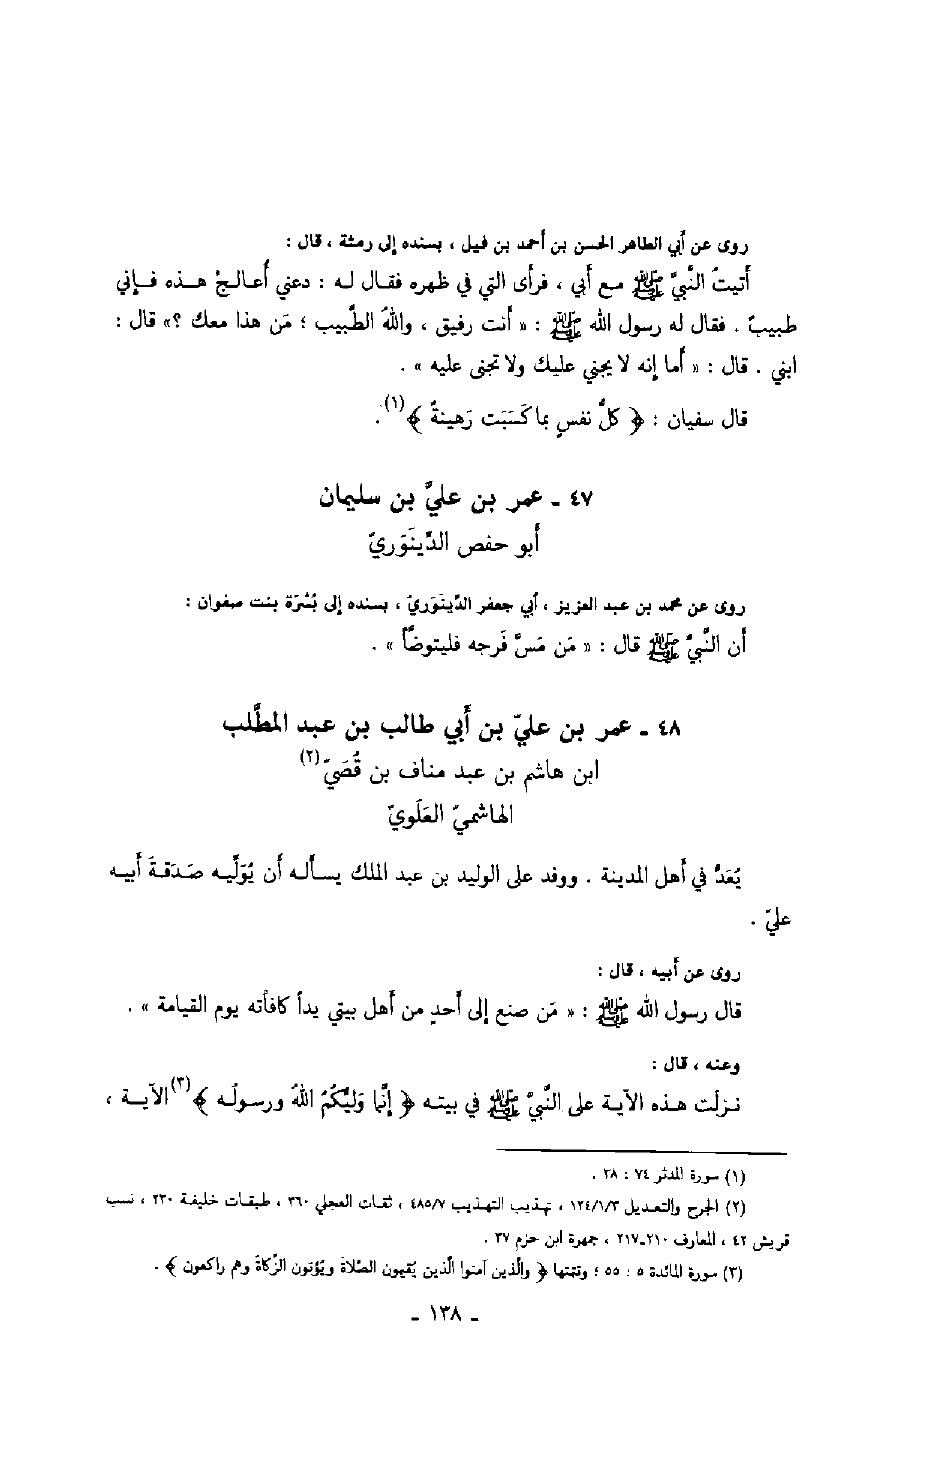 روى عن أبي الطاهر الحسن بن أحمد بن فيل ، بسنده إلى رمثة ، قال :
أتيتُ النَّبيَّ ﷺ مع أبي ، فرأى التي في ظهره فقال له : دعني أُعالجْ هذه فإني
طبيبٌ . فقال له رسول الله ﷺ : « أنت رفيق ، واللهُ الطَّبيب ؛ مَن هذا معك ؟» قال :
ابني . قال : « أما إنه لا يجني عليك ولا تجنى عليه » .
قال سفيان : ﴿ كلُّ نفسٍ بما كَسَبَت رَهينةٌ ﴾(١).
٤٧ ـ عمر بن عليّ بن سليمان
أبو حفص الدِّينَوَريّ
روى عن محمد بن عبد العزيز ، أبي جعفر الدِّينَوَريّ ، بسنده إلى بُسْرَة بنت صفوان :
أن النَّبيَّ ﷺ قال : « مَن مَسَّ فَرجه فليتوضَّأ » .
٤٨ ـ عمر بن عليّ بن أبي طالب بن عبد المطَّلب
ابن هاشم بن عبد مناف بن قُصَيّ(٢)
الهاشميّ العَلَويّ
يُعَدُّ في أهل المدينة . ووفد على الوليد بن عبد الملك يسأله أن يُوَلِّيه صَدَقةَ أبيه
عليّ .
روى عن أبيه ، قال :
قال رسول الله ﷺ : « مَن صنع إلى أحدٍ من أهل بيتي يدأ كافأته يوم القيامة » .
وعنه ، قال :
نزلت هذه الآية على النَّبيِّ ﷺ في بيته ﴿ إنَّما وَليُّكُمُ اللهُ ورسولُه ﴾(٣) الآية ،
(١) سورة المدثر ٧٤ : ٣٨ .
(٢) الجرح والتعديل ١٢٤/١/٣ ، تهذيب التهذيب ٤٨٥/٧ ، ثقات العجلي ٣٦٠ ، طبقات خليفة ٢٣٠ ، نسب
قريش ٤٢ ، المعارف ٢١٠ـ٢١٧ ، جمهرة ابن حزم ٣٧ .
(٣) سورة المائدة ٥ : ٥٥ ؛ وتتمتها ﴿ والَّذين آمنوا الَّذين يُقيمون الصَّلاةَ ويُؤتون الزَّكاةَ وهم راكعون ﴾ .
ـ ١٣٨ ـ